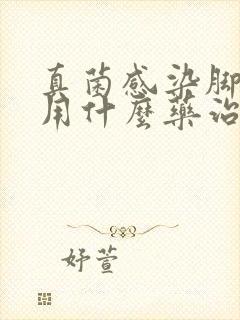 真菌感染脚
用什麼藥治
妤萱